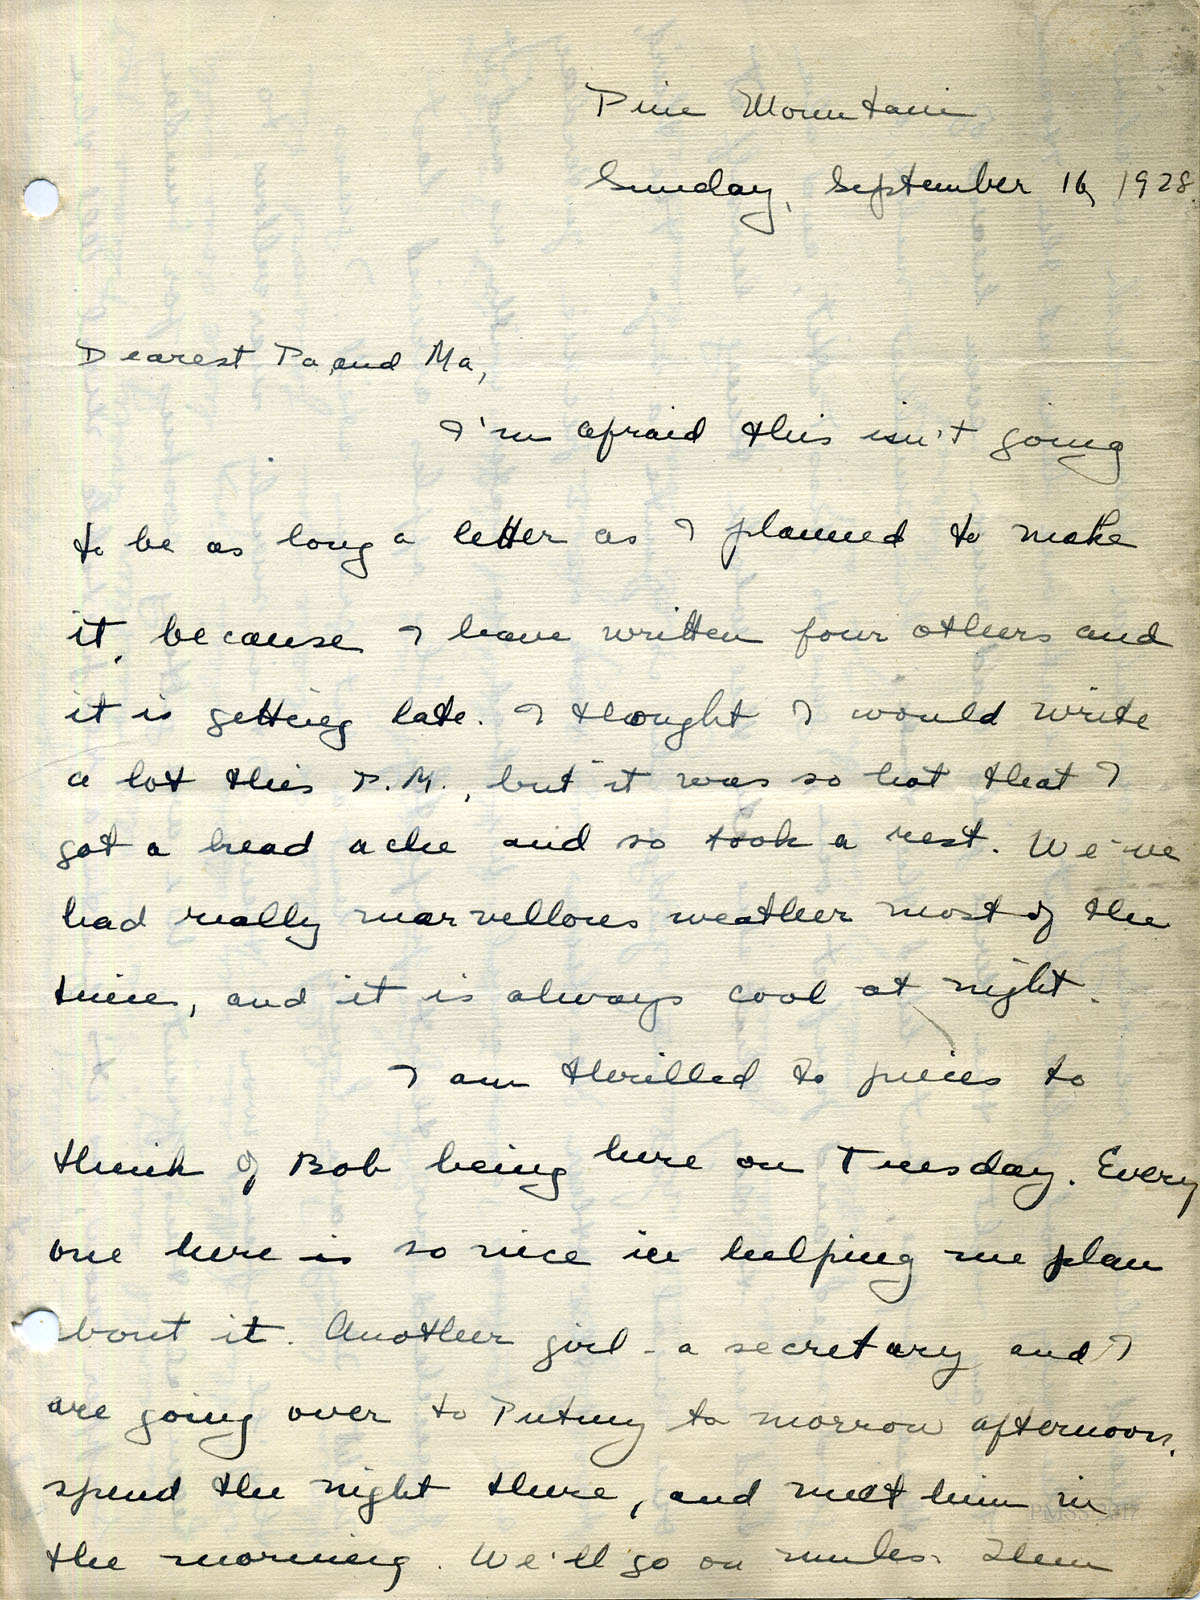 Pine Mountain
Sunday, September 16, 1928.
Dearest Pa and Ma,
I'm afraid this isn't going
to be as long a letter as I planned to make
it, because I have written four others and
it is getting late. I thought I would write
a lot this P.M., but it was so hot that I
got a head ache and so took a rest. We've
had really marvellous weather most of the
time, and it is always cool at night.
I am thrilled to pieces to
think of Bob being here on Tuesday. Every
one here is so nice in helping me plan
about it. Another girl - a secretary and I
are going over to Putney to morrow afternoon,
spend the night there, and meet him in
the morning. We'll go on mules. Then